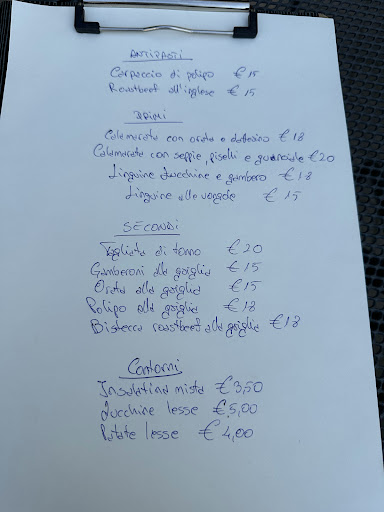 ANTIPASTI
Carpaccio di polipo €15
Roastbeef all'inglese €15
PRIMI
Calamarata con orata e datterino €18
Calamarata con seppie, piselli e guanciale €20
Linguine zucchine e gambero €18
Linguine alle vongole €15
SECONDI
Tagliata di tonno €20
Gamberoni alla griglia €15
Orata alla griglia €15
Polipo alla griglia €18
Bistecca roastbeef alla griglia €18
Contorni
Insalatina mista €3,50
Zucchine lesse €5,00
Patate lesse €4,00